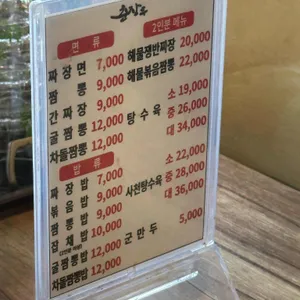 면 류
짜 장 면 7,000
짬 뽕 9,000
간 짜 장 9,000
굴 짬 뽕 12,000
차돌짬뽕 12,000
밥 류
짜 장 밥 7,000
볶 음 밥 9,000
짬 뽕 밥 9,000
잡 채 밥 10,000
굴짬뽕밥 12,000
차돌짬뽕밥 12,000
2인분 메뉴
해물쟁반짜장 20,000
해물볶음짬뽕 22,000
탕 수 육
소 19,000
중 26,000
대 34,000
사천탕수육
소 22,000
중 28,000
대 36,000
군 만 두 5,000